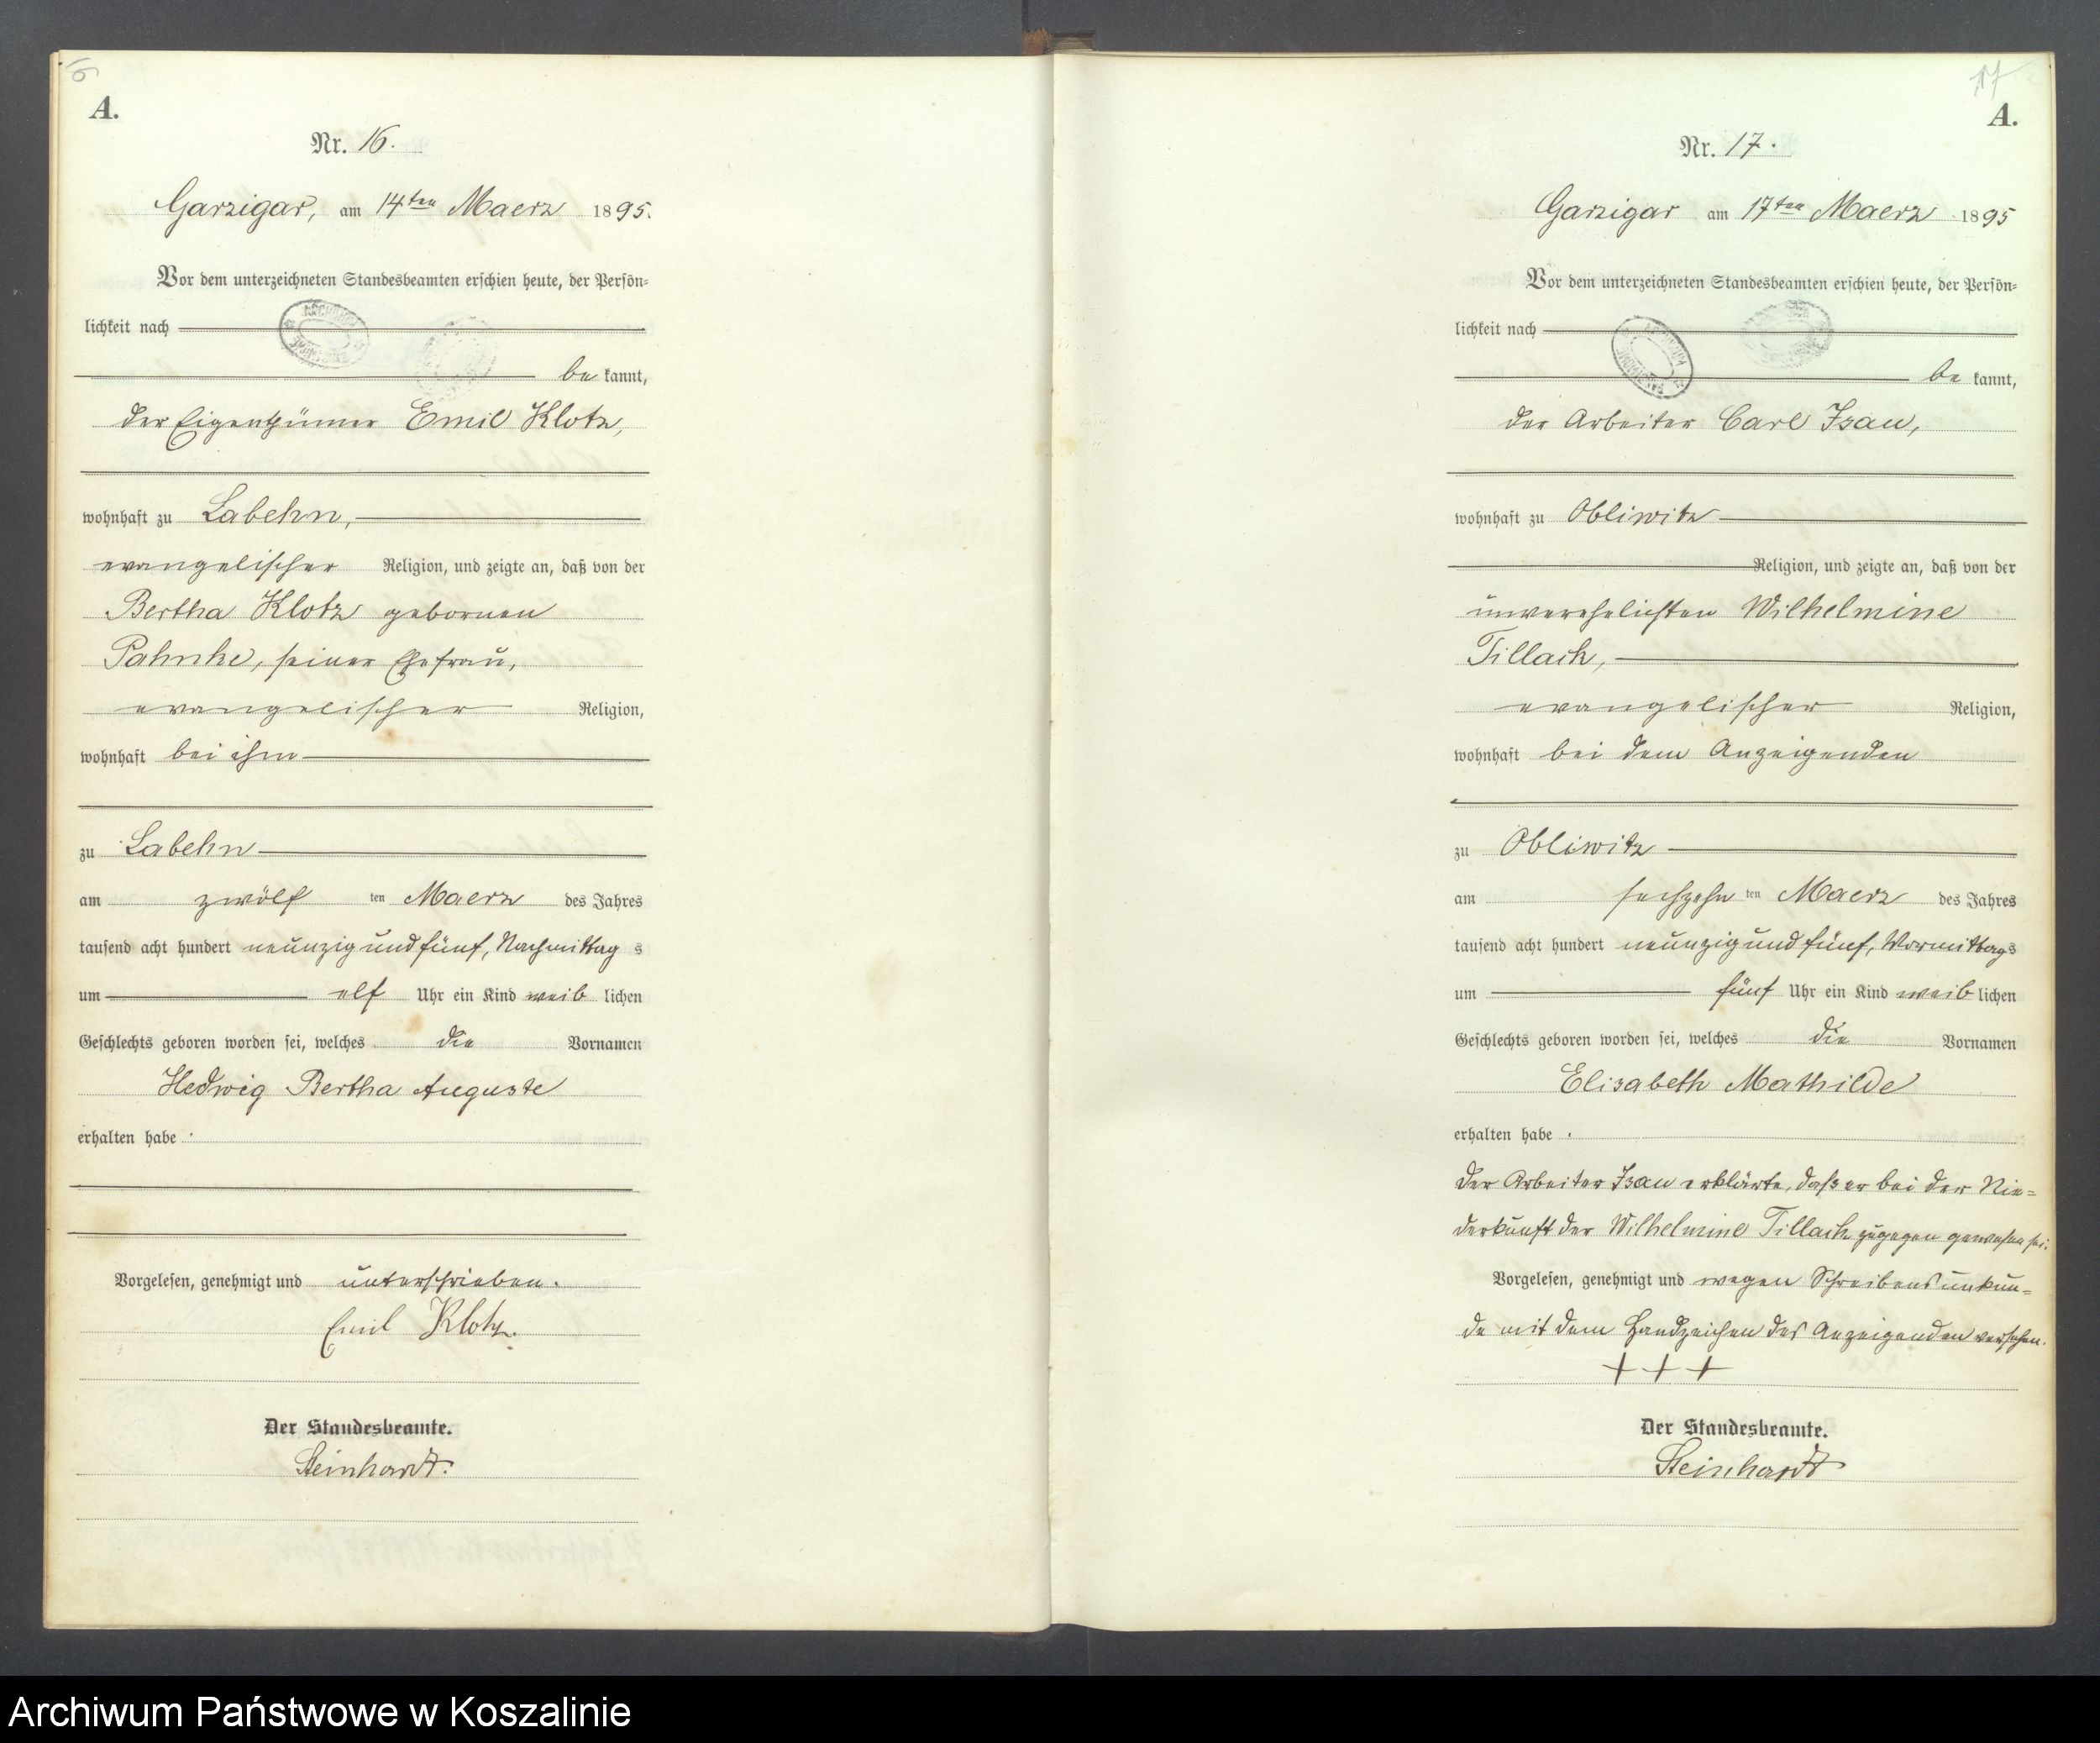 16
A.
Nr. 16.
Garzigar, am 14ten Maerz 1895.
Vor dem unterzeichneten Standesbeamten erschien heute, der Persön-
lichkeit nach
be kannt,
der Eigenthümer Emil Klotz,
wohnhaft zu Labehn,
evangelischer Religion, und zeigte an, daß von der
Bertha Klotz gebornen
Pahnke, seiner Ehefrau,
evangelischer Religion,
wohnhaft bei ihm
zu Labehn
am zwölf ten Maerz des Jahres
tausend acht hundert neunzig und fünf, Nachmittag s
um elf Uhr ein Kind weib lichen
Geschlechts geboren worden sei, welches die Vornamen
Hedwig Bertha Auguste
erhalten habe.
Vorgelesen, genehmigt und unterschrieben.
Emil Klotz.
Der Standesbeamte.
Steinhardt.
17
A.
Nr. 17.
Garzigar am 17ten Maerz 1895
Vor dem unterzeichneten Standesbeamten erschien heute, der Persön-
lichkeit nach
be kannt,
der Arbeiter Carl Isau,
wohnhaft zu Obliwitz
Religion, und zeigte an, daß von der
unverehelichten Wilhelmine
Tillack,
evangelischer Religion,
wohnhaft bei dem Anzeigenden
zu Obliwitz
am sechzehn ten Maerz des Jahres
tausend acht hundert neunzig und fünf, Vormittags
um fünf Uhr ein Kind weib lichen
Geschlechts geboren worden sei, welches die Vornamen
Elisabeth Mathilde
erhalten habe.
Der Arbeiter Isau erklärte, daß er bei der Nie-
derkunft der Wilhelmine Tillack zugegen gewesen sei.
Vorgelesen, genehmigt und wegen Schreibensunkun-
de mit dem Handzeichen des Anzeigenden versehen.
+ + +
Der Standesbeamte.
Steinhardt
Archiwum Państwowe w Koszalinie